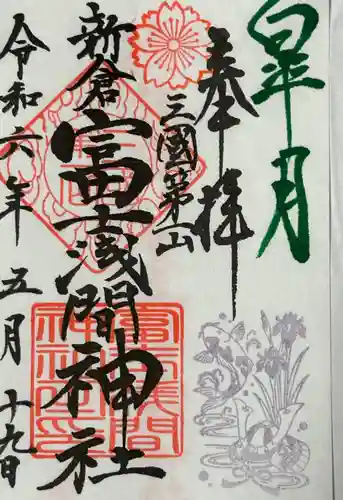 皐月
奉拝
三國第一山
新倉富士浅間神社
令和六年五月十九日